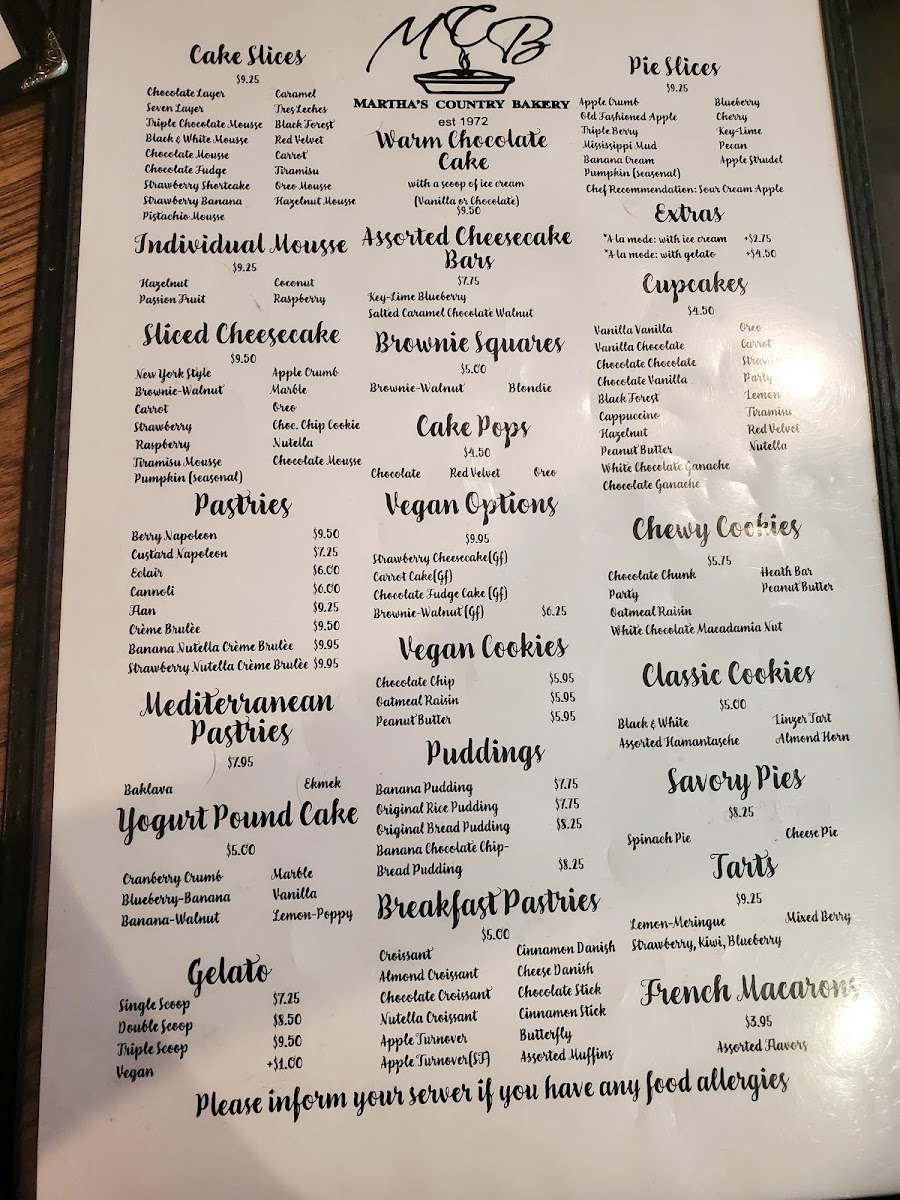 MCB
MARTHA'S COUNTRY BAKERY
est 1972
Cake Slices
$9.25
Chocolate Layer
Seven Layer
Triple Chocolate Mousse
Black & White Mousse
Chocolate Mousse
Chocolate Fudge
Strawberry Shortcake
Strawberry Banana
Pistachio Mousse
Caramel
Tres Leches
Black Forest
Red Velvet
Carrot
Tiramisu
Oreo Mousse
Hazelnut Mousse
Individual Mousse
$9.25
Hazelnut
Passion Fruit
Coconut
Raspberry
Sliced Cheesecake
$9.50
New York Style
Brownie-Walnut
Carrot
Strawberry
Raspberry
Tiramisu Mousse
Pumpkin (seasonal)
Apple Crumb
Marble
Oreo
Choc. Chip Cookie
Nutella
Chocolate Mousse
Pastries
Berry Napoleon $9.50
Custard Napoleon $7.25
Eclair $6.00
Cannoli $6.00
Flan $9.25
Crème Brulèe $9.50
Banana Nutella Crème Brulèe $9.95
Strawberry Nutella Crème Brulèe $9.95
Mediterranean
Pastries
$7.95
Baklava
Ekmek
Yogurt Pound Cake
$5.00
Cranberry Crumb
Blueberry-Banana
Banana-Walnut
Marble
Vanilla
Lemon-Poppy
Gelato
Single Scoop $7.25
Double Scoop $8.50
Triple Scoop $9.50
Vegan +$1.00
Warm Chocolate
Cake
with a scoop of ice cream
(Vanilla or Chocolate)
$9.50
Assorted Cheesecake
Bars
$7.75
Key-Lime Blueberry
Salted Caramel Chocolate Walnut
Brownie Squares
$5.00
Brownie-Walnut Blondie
Cake Pops
$4.50
Chocolate Red Velvet Oreo
Vegan Options
$9.95
Strawberry Cheesecake(Gf)
Carrot Cake(Gf)
Chocolate Fudge Cake (Gf)
Brownie-Walnut (Gf) $6.25
Vegan Cookies
Chocolate Chip $5.95
Oatmeal Raisin $5.95
Peanut Butter $5.95
Puddings
Banana Pudding $7.75
Original Rice Pudding $7.75
Original Bread Pudding $8.25
Banana Chocolate Chip-
Bread Pudding $8.25
Breakfast Pastries
$5.00
Croissant
Almond Croissant
Chocolate Croissant
Nutella Croissant
Apple Turnover
Apple Turnover(SF)
Cinnamon Danish
Cheese Danish
Chocolate Stick
Cinnamon Stick
Butterfly
Assorted Muffins
Pie Slices
$9.25
Apple Crumb
Old Fashioned Apple
Triple Berry
Mississippi Mud
Banana Cream
Pumpkin (seasonal)
Blueberry
Cherry
Key-Lime
Pecan
Apple Strudel
Chef Recommendation: Sour Cream Apple
Extras
*A la mode: with ice cream +$2.75
*A la mode: with gelato +$4.50
Cupcakes
$4.50
Vanilla Vanilla
Vanilla Chocolate
Chocolate Chocolate
Chocolate Vanilla
Black Forest
Cappuccino
Hazelnut
Peanut Butter
White Chocolate Ganache
Chocolate Ganache
Oreo
Carrot
Party
Lemon
Tiramisu
Red Velvet
Nutella
Chewy Cookies
$5.75
Chocolate Chunk
Party
Oatmeal Raisin
White Chocolate Macadamia Nut
Heath Bar
Peanut Butter
Classic Cookies
$5.00
Black & White
Assorted Hamantasche
Linzer Tart
Almond Horn
Savory Pies
$8.25
Spinach Pie
Cheese Pie
Tarts
$9.25
Lemon-Meringue
Mixed Berry
Strawberry, Kiwi, Blueberry
French Macarons
$3.95
Assorted Flavors
Please inform your server if you have any food allergies